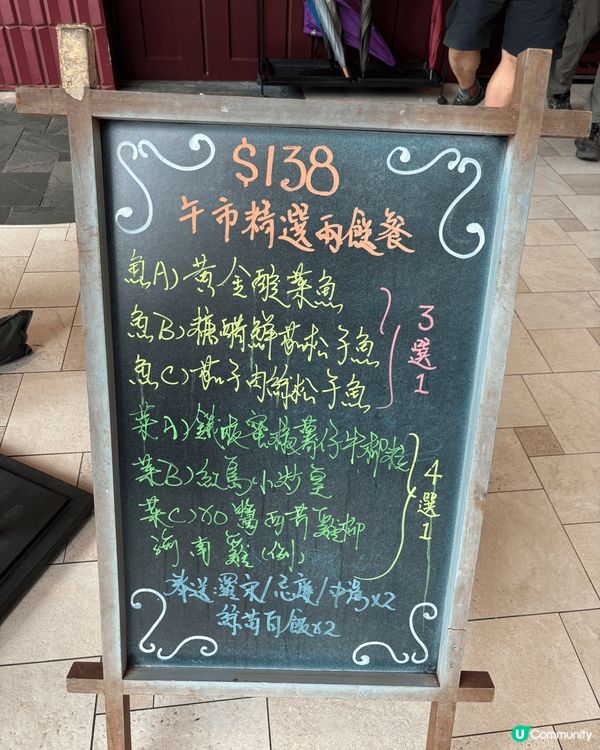 $138
午市精選兩餸餐
魚A)黃金酸菜魚
魚B)糖醋鮮茄松子魚
魚C)茄子肉絲松子魚
3選1
菜A)鐵板蜜椒薯仔牛柳粒
菜B)紅島小炒皇
菜C)XO醬西芹雞柳
海南雞(例)
4選1
奉送羅宋/忌廉/中湯x2
絲苗白飯x2
U Community